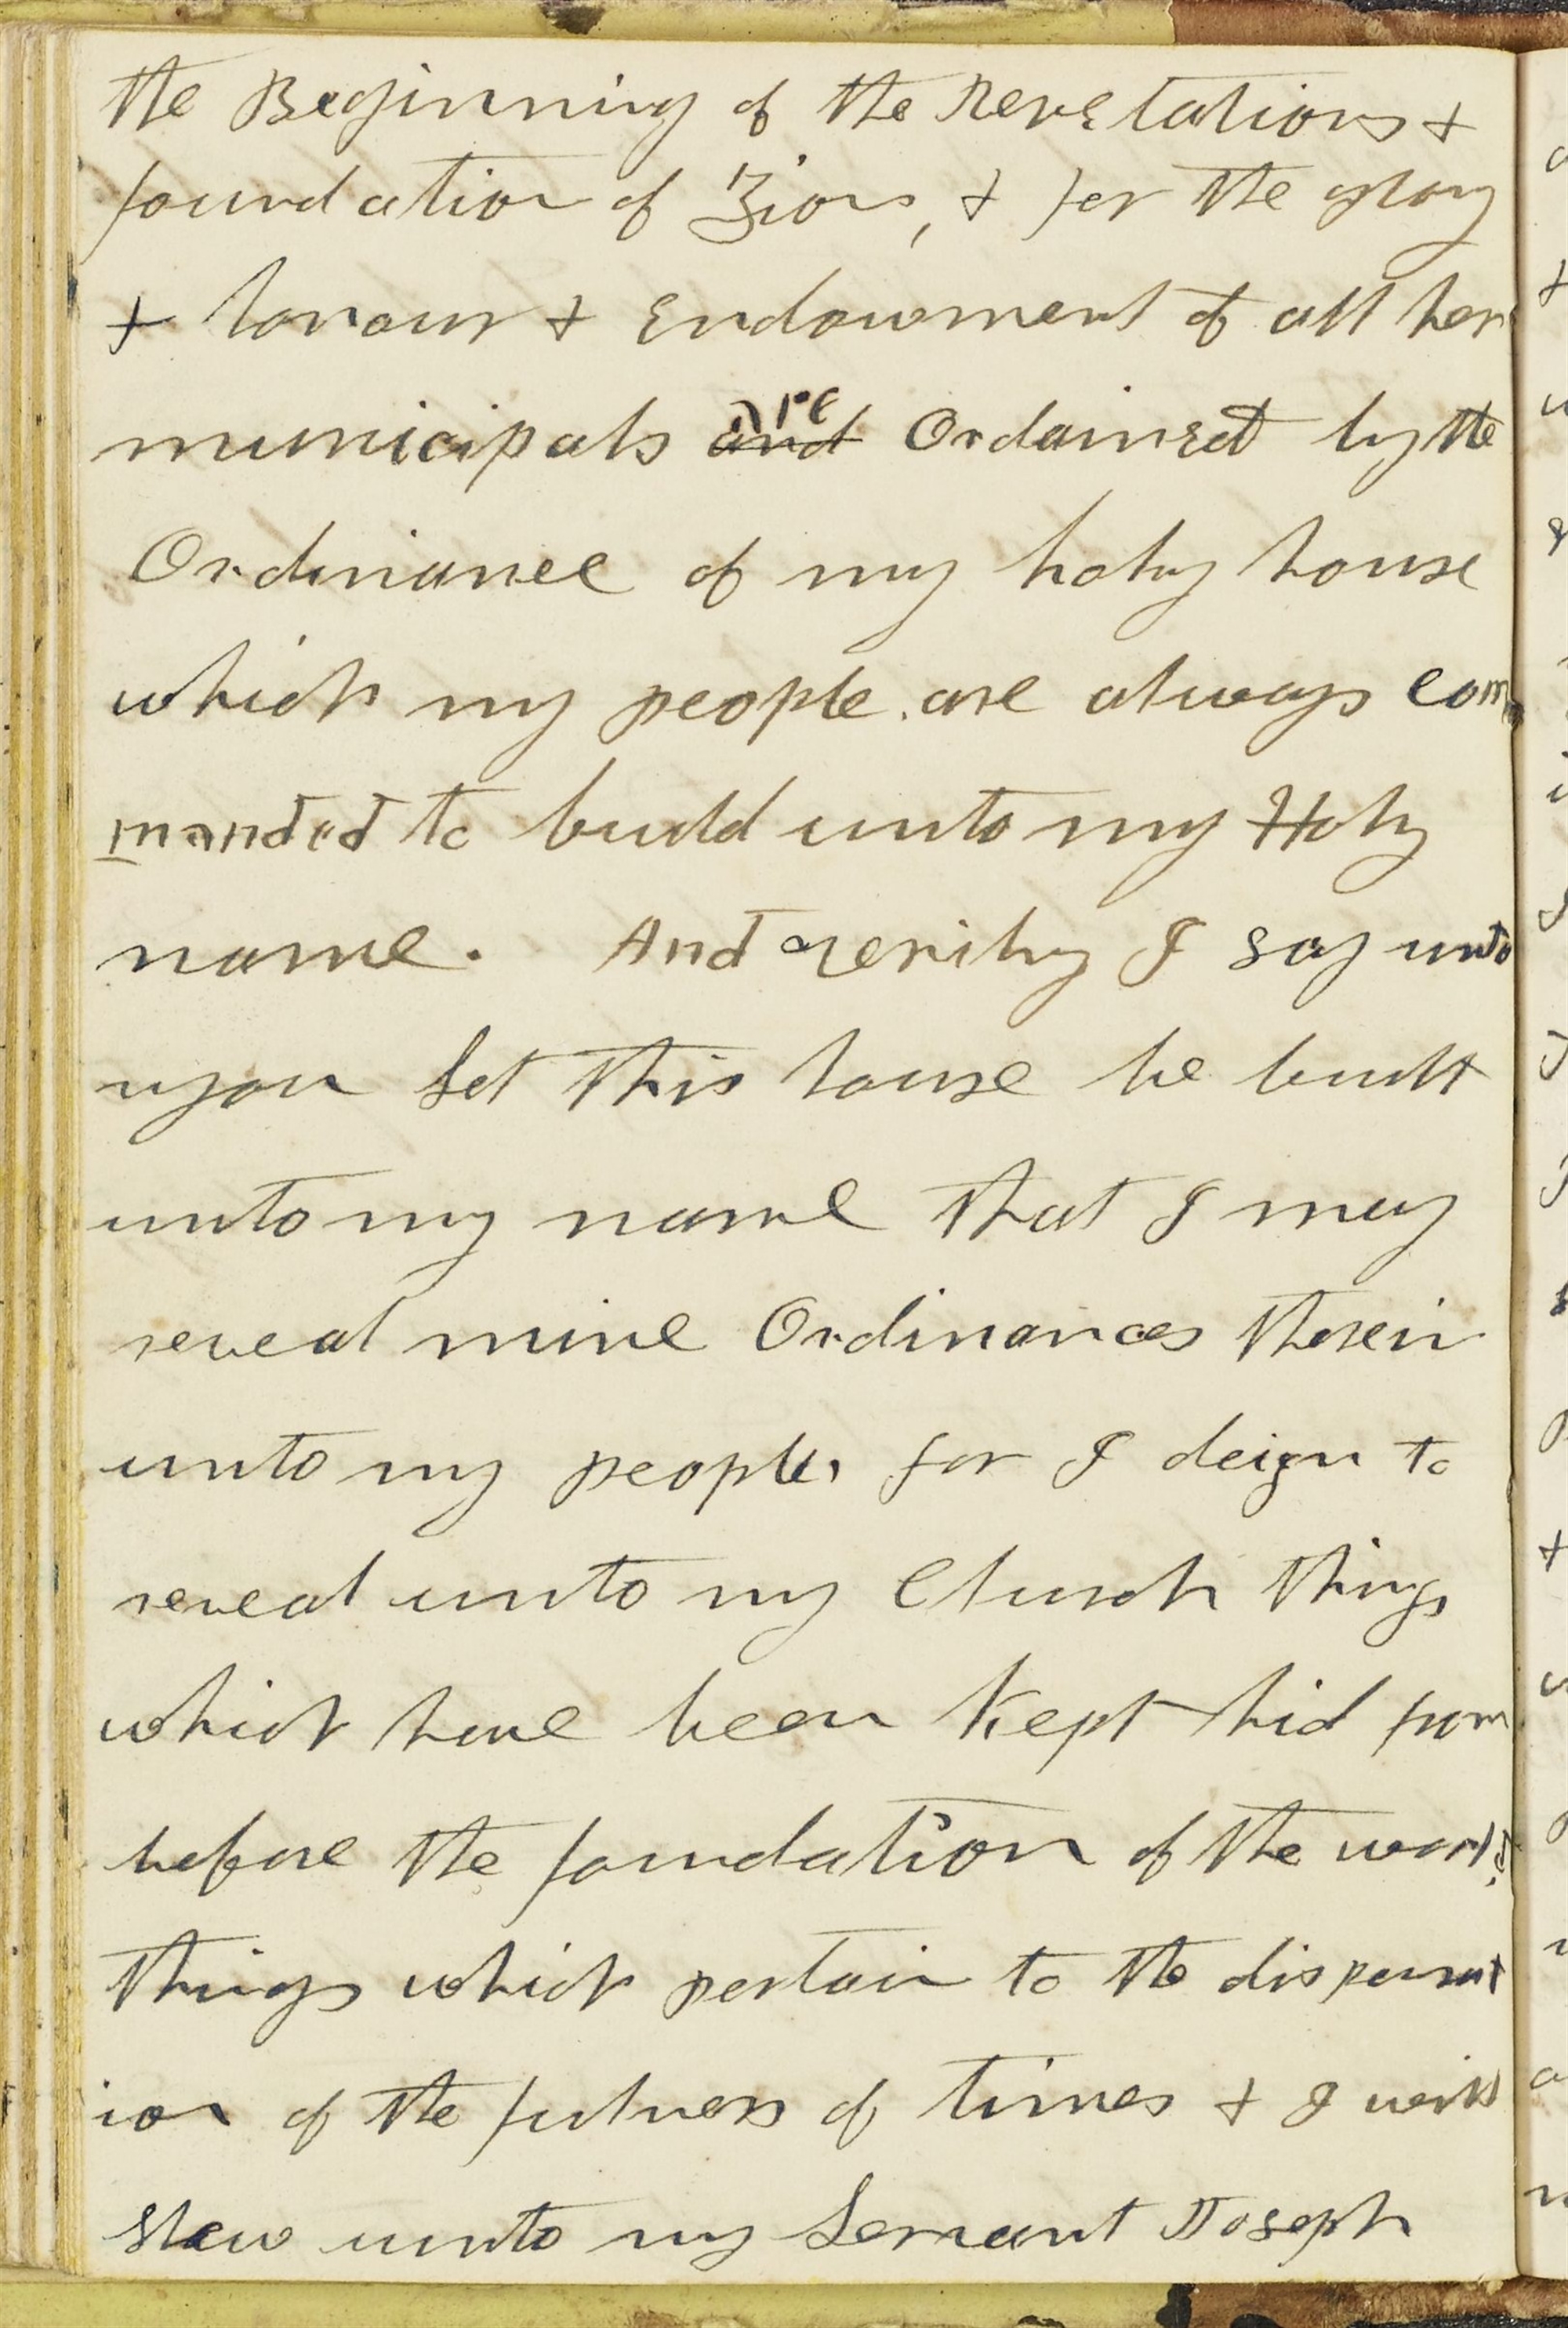 the Beginning of the Revelations &
foundation of Zion, & for the glory
& honour & Endowment of all her
municipals are and Ordained by the
Ordinance of my holy house
which my people are always com
manded to build unto my Holy
name. And verily I say unto
you let this house be built
unto my name that I may
reveal mine Ordinances therein
unto my people, for I deign to
reveal unto my Church things
which have been Kept hid from
before the foundation of the world,
things which pertain to the dispensat
ion of the fulness of times & I will
shew unto my Servant Joseph